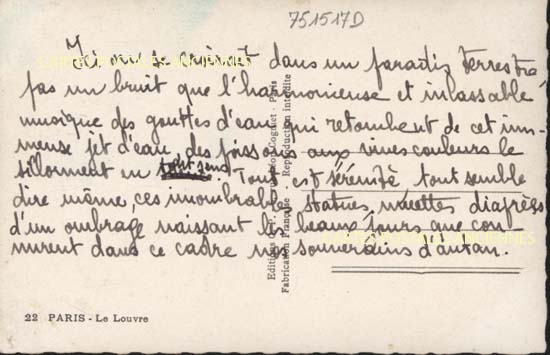 751517D
Ici on se croirait dans un paradis terrestre
pas un bruit que l'harmonieuse et inlassable
musique des gouttes d'eau qui retombent de cet im-
mense jet d'eau, des poissons aux vives couleurs le
sillonnent en tout sens. Tout est sérénité, tout semble
dire même ces innombrables statues, muettes
d'un ombrage naissant les beaux jours que con
nurent dans ce cadre nos souverains d'antan.
Editions d'Art Cognet - Paris
Fabrication Française - Reproduction interdite
22 PARIS - Le Louvre